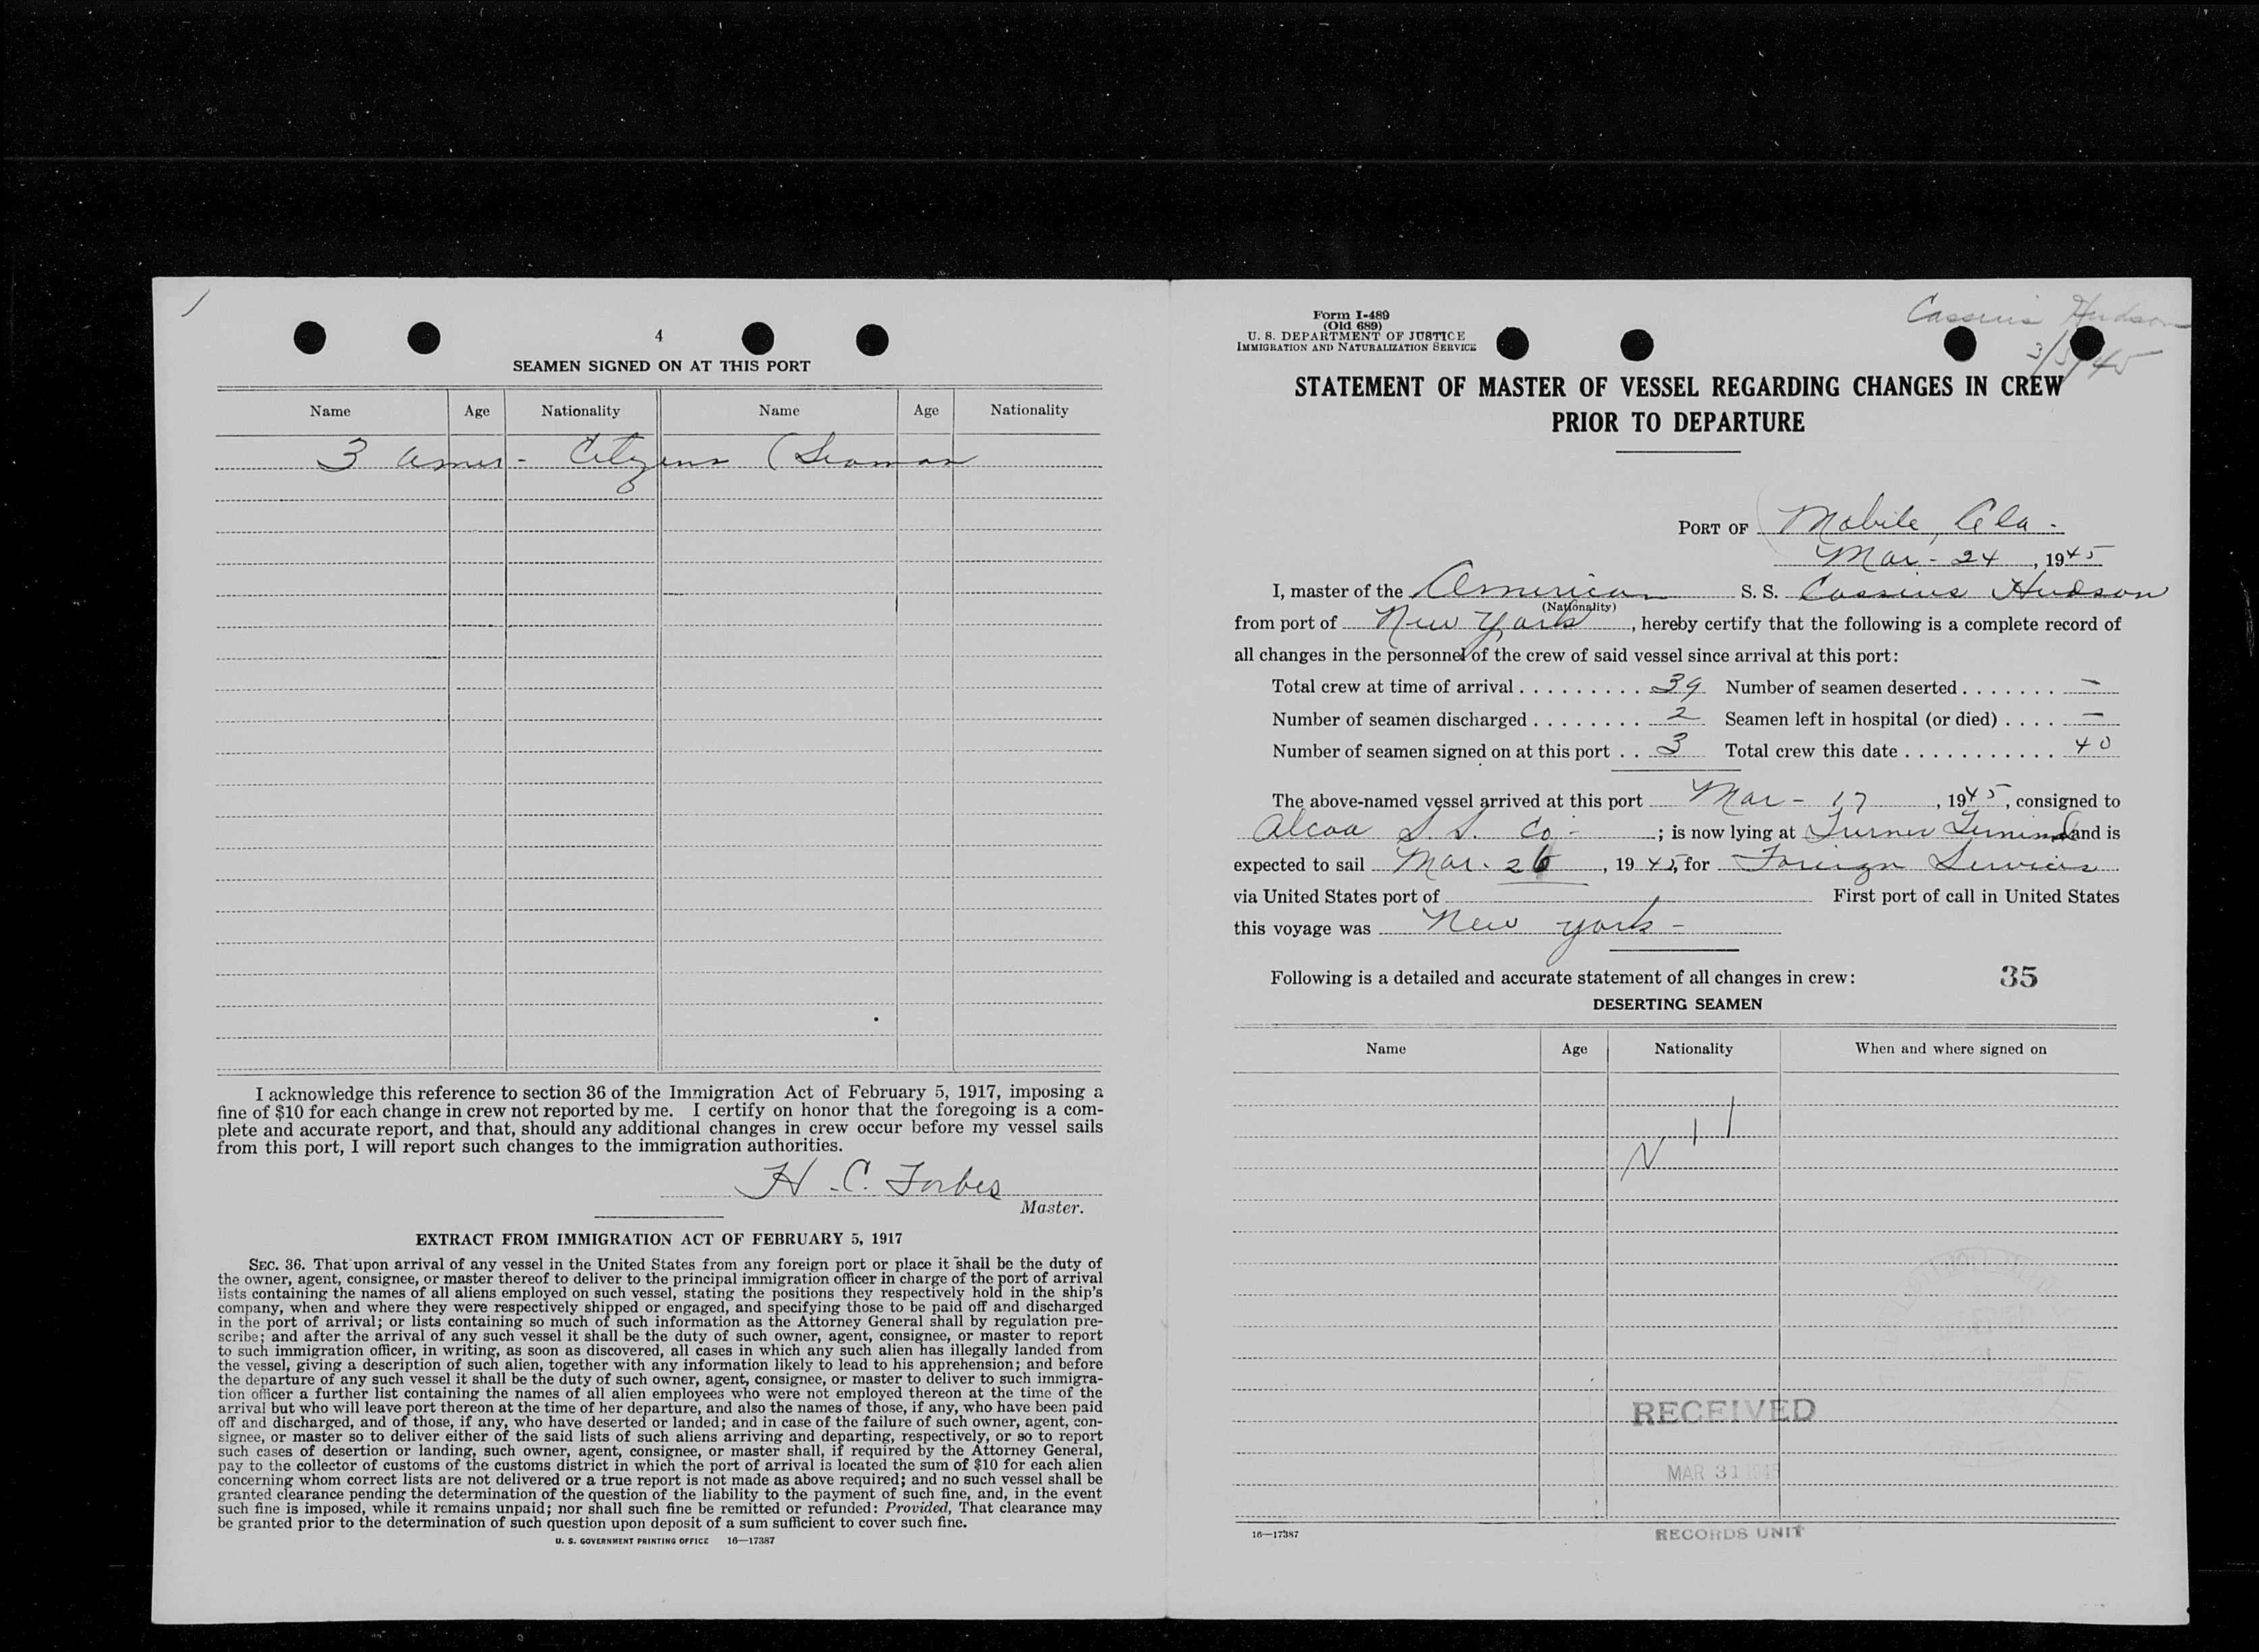 4
SEAMEN SIGNED ON AT THIS PORT
Name Age Nationality Name Age Nationality
3 Amer- Citizens (Seaman
I acknowledge this reference to section 36 of the Immigration Act of February 5, 1917, imposing a
fine of $10 for each change in crew not reported by me. I certify on honor that the foregoing is a com-
plete and accurate report, and that, should any additional changes in crew occur before my vessel sails
from this port, I will report such changes to the immigration authorities.
H. C. Forbes
Master.
EXTRACT FROM IMMIGRATION ACT OF FEBRUARY 5, 1917
SEC. 36. That upon arrival of any vessel in the United States from any foreign port or place it shall be the duty of
the owner, agent, consignee, or master thereof to deliver to the principal immigration officer in charge of the port of arrival
lists containing the names of all aliens employed on such vessel, stating the positions they respectively hold in the ship's
company, when and where they were respectively shipped or engaged, and specifying those to be paid off and discharged
in the port of arrival; or lists containing so much of such information as the Attorney General shall by regulation pre-
scribe; and after the arrival of any such vessel it shall be the duty of such owner, agent, consignee, or master to report
to such immigration officer, in writing, as soon as discovered, all cases in which any such alien has illegally landed from
the vessel, giving a description of such alien, together with any information likely to lead to his apprehension; and before
the departure of any such vessel it shall be the duty of such owner, agent, consignee, or master to deliver to such immigra-
tion officer a further list containing the names of all alien employees who were not employed thereon at the time of the
arrival but who will leave port thereon at the time of her departure, and also the names of those, if any, who have been paid
off and discharged, and of those, if any, who have deserted or landed; and in case of the failure of such owner, agent, con-
signee, or master so to deliver either of the said lists of such aliens arriving and departing, respectively, or so to report
such cases of desertion or landing, such owner, agent, consignee, or master shall, if required by the Attorney General,
pay to the collector of customs of the customs district in which the port of arrival is located the sum of $10 for each alien
concerning whom correct lists are not delivered or a true report is not made as above required; and no such vessel shall be
granted clearance pending the determination of the question of the liability to the payment of such fine, and, in the event
such fine is imposed, while it remains unpaid; nor shall such fine be remitted or refunded: Provided, That clearance may
be granted prior to the determination of such question upon deposit of a sum sufficient to cover such fine.
U. S. GOVERNMENT PRINTING OFFICE 16—17387
Form I-489
(Old 689)
U. S. DEPARTMENT OF JUSTICE
IMMIGRATION AND NATURALIZATION SERVICE
Cassius Hudson
3/5/45
STATEMENT OF MASTER OF VESSEL REGARDING CHANGES IN CREW
PRIOR TO DEPARTURE
PORT OF Mobile, Ala.
Mar- 24, 1945
I, master of the American S. S. Cassius Hudson
(Nationality)
from port of New York, hereby certify that the following is a complete record of
all changes in the personnel of the crew of said vessel since arrival at this port:
Total crew at time of arrival . . . . . . . . . 39 Number of seamen deserted . . . . . . . —
Number of seamen discharged . . . . . . . . 2 Seamen left in hospital (or died) . . . . —
Number of seamen signed on at this port . . 3 Total crew this date . . . . . . . . . . . . 40
The above-named vessel arrived at this port Mar- 17, 1945, consigned to
Alcoa S. S. Co-; is now lying at Turner Terminal and is
expected to sail Mar. 26, 1945, for Foreign Services
via United States port of First port of call in United States
this voyage was New York-
Following is a detailed and accurate statement of all changes in crew: 35
DESERTING SEAMEN
Name Age Nationality When and where signed on
Nil
RECEIVED
MAR 31 1945
16—17387
RECORDS UNIT